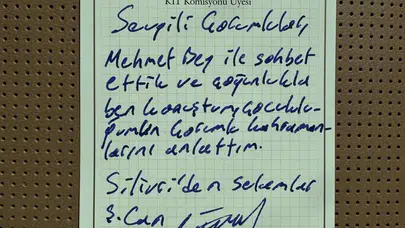 KİT Komisyonu Üyesi
Sevgili Çocuklar,
Mehmet Bey ile sohbet
ettik ve çoğunlukla
ben konuştum, çocuklu-
ğumun çocuk kahraman-
larını anlattım.
Silivri'den selamlar
Ş. Can